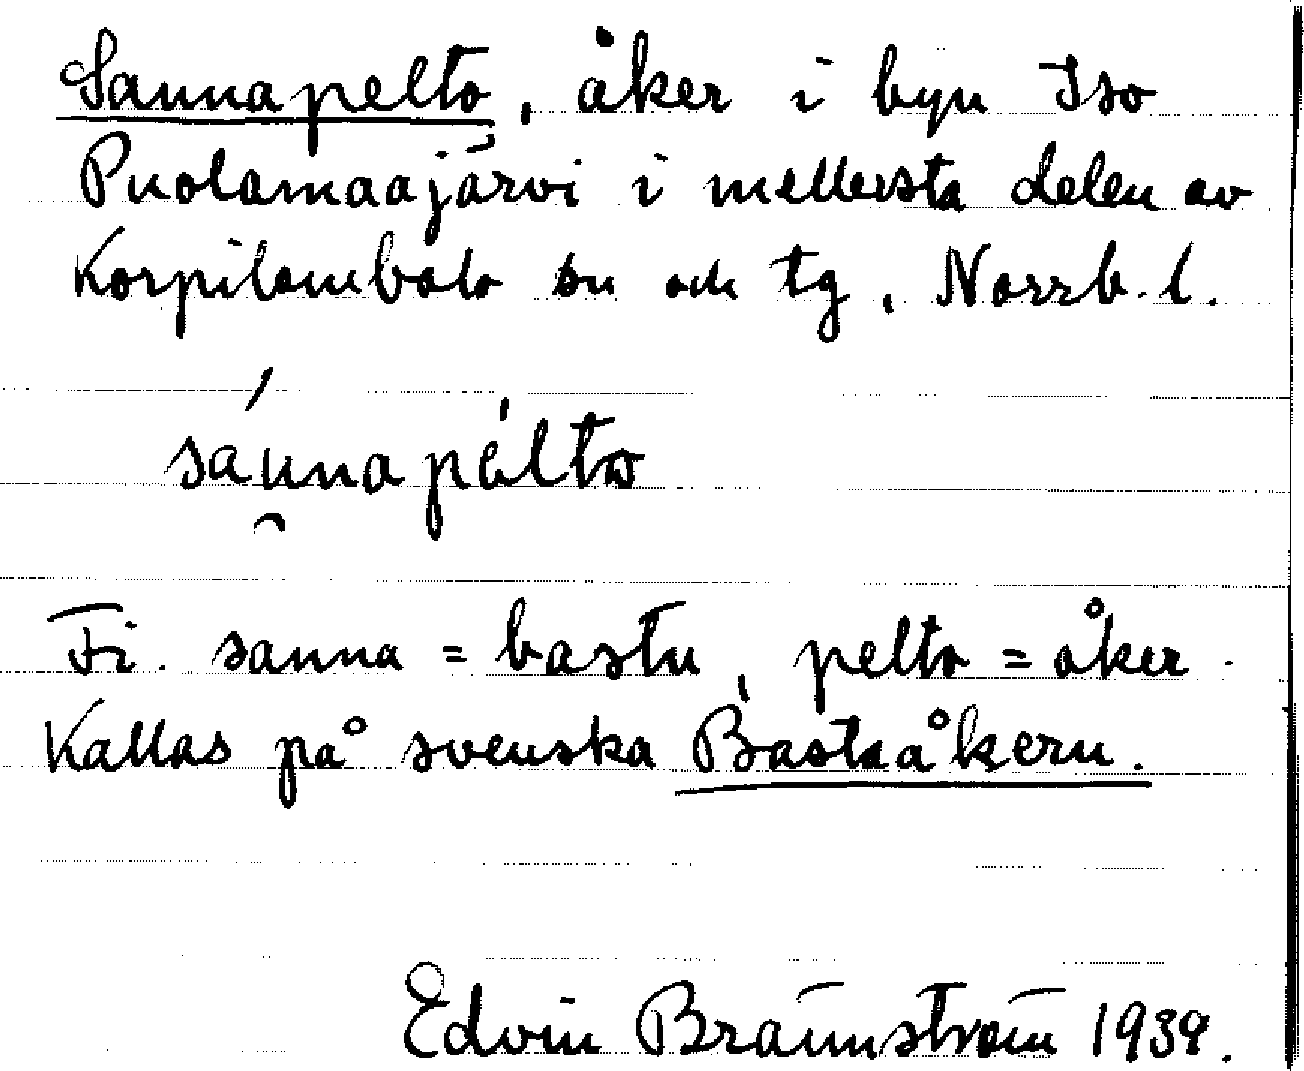 Saunapelto, åker i byn Iso
Puolamaajärvi i mellersta delen av
Korpilombolo sn och tg, Norrb. l.
sáu̯napèlto
Fi. sauna = bastu, pelto = åker.
Kallas på svenska Bastuåkern.
Edvin Brännström 1939.